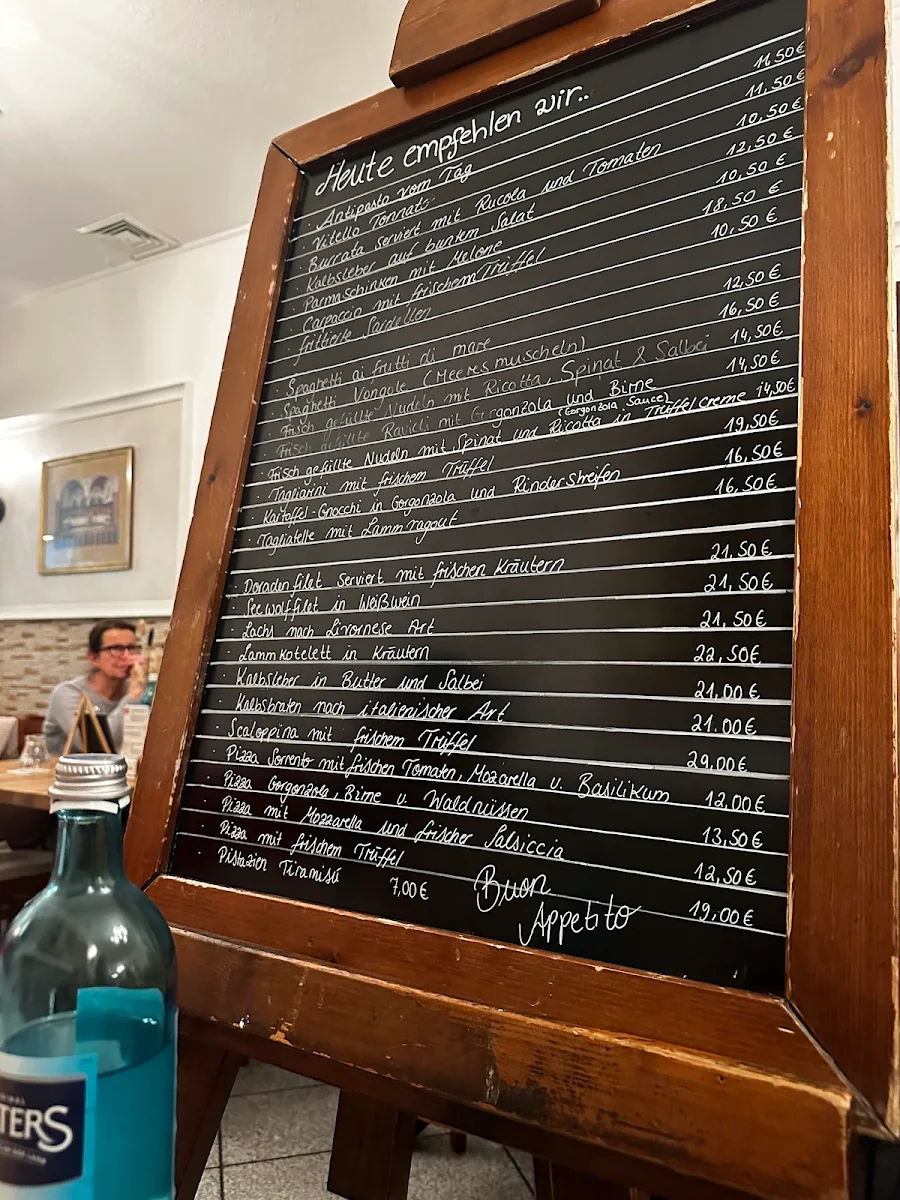 Heute empfehlen wir..
· Antipasto vom Tag 11,50€
· Vitello Tonnato 11,50€
· Burrata serviert mit Rucola und Tomaten 10,50€
· Kalbsleber auf buntem Salat 12,50€
· Parmaschinken mit Melone 10,50€
· Carpaccio mit frischem Trüffel 18,50€
· frittierte Sardellen 10,50€
· Spaghetti ai frutti di mare 12,50€
· Spaghetti Vongole (Meeresmuscheln) 16,50€
· Frisch gefüllte Nudeln mit Ricotta, Spinat & Salbei 14,50€
· Frisch gefüllte Ravioli mit Gorgonzola und Birne 14,50€
(Gorgonzola Sauce)
· Frisch gefüllte Nudeln mit Spinat und Ricotta in Trüffelcreme 14,50€
· Tagliarini mit frischem Trüffel 19,50€
· Kartoffel-Gnocchi in Gorgonzola und Rinderstreifen 16,50€
· Tagliatelle mit Lammragout 16,50€
· Doradenfilet serviert mit frischen Kräutern 21,50€
· Seewolffilet in Weißwein 21,50€
· Lachs nach Livornese Art 21,50€
· Lammkotelett in Kräutern 22,50€
· Kalbsleber in Butter und Salbei 21,00€
· Kalbsbraten nach italienischer Art 21,00€
· Scaloppina mit frischem Trüffel 29,00€
· Pizza Sorrento mit frischen Tomaten, Mozarella u. Basilikum 12,00€
· Pizza Gorgonzola, Birne u. Waldnüssen 13,50€
· Pizza mit Mozzarella und frischer Salsiccia 12,50€
· Pizza mit frischem Trüffel 19,00€
· Pistazien Tiramisú 7,00€
Buon
Appetito
TERS